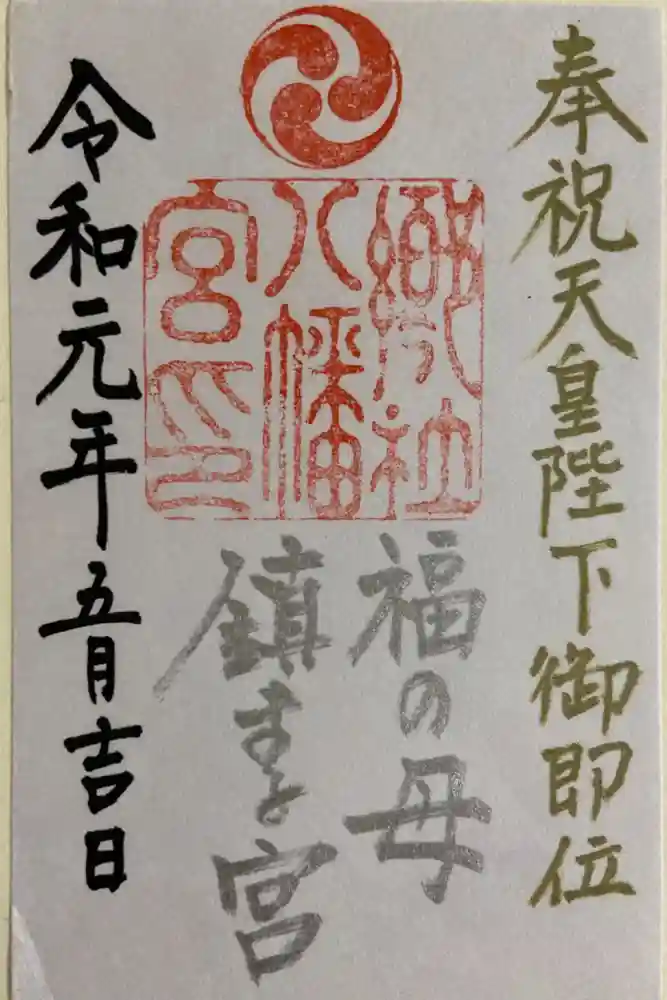 奉祝天皇陛下御即位
郷社
八幡
宮印
福の母
鎮まる宮
令和元年五月吉日